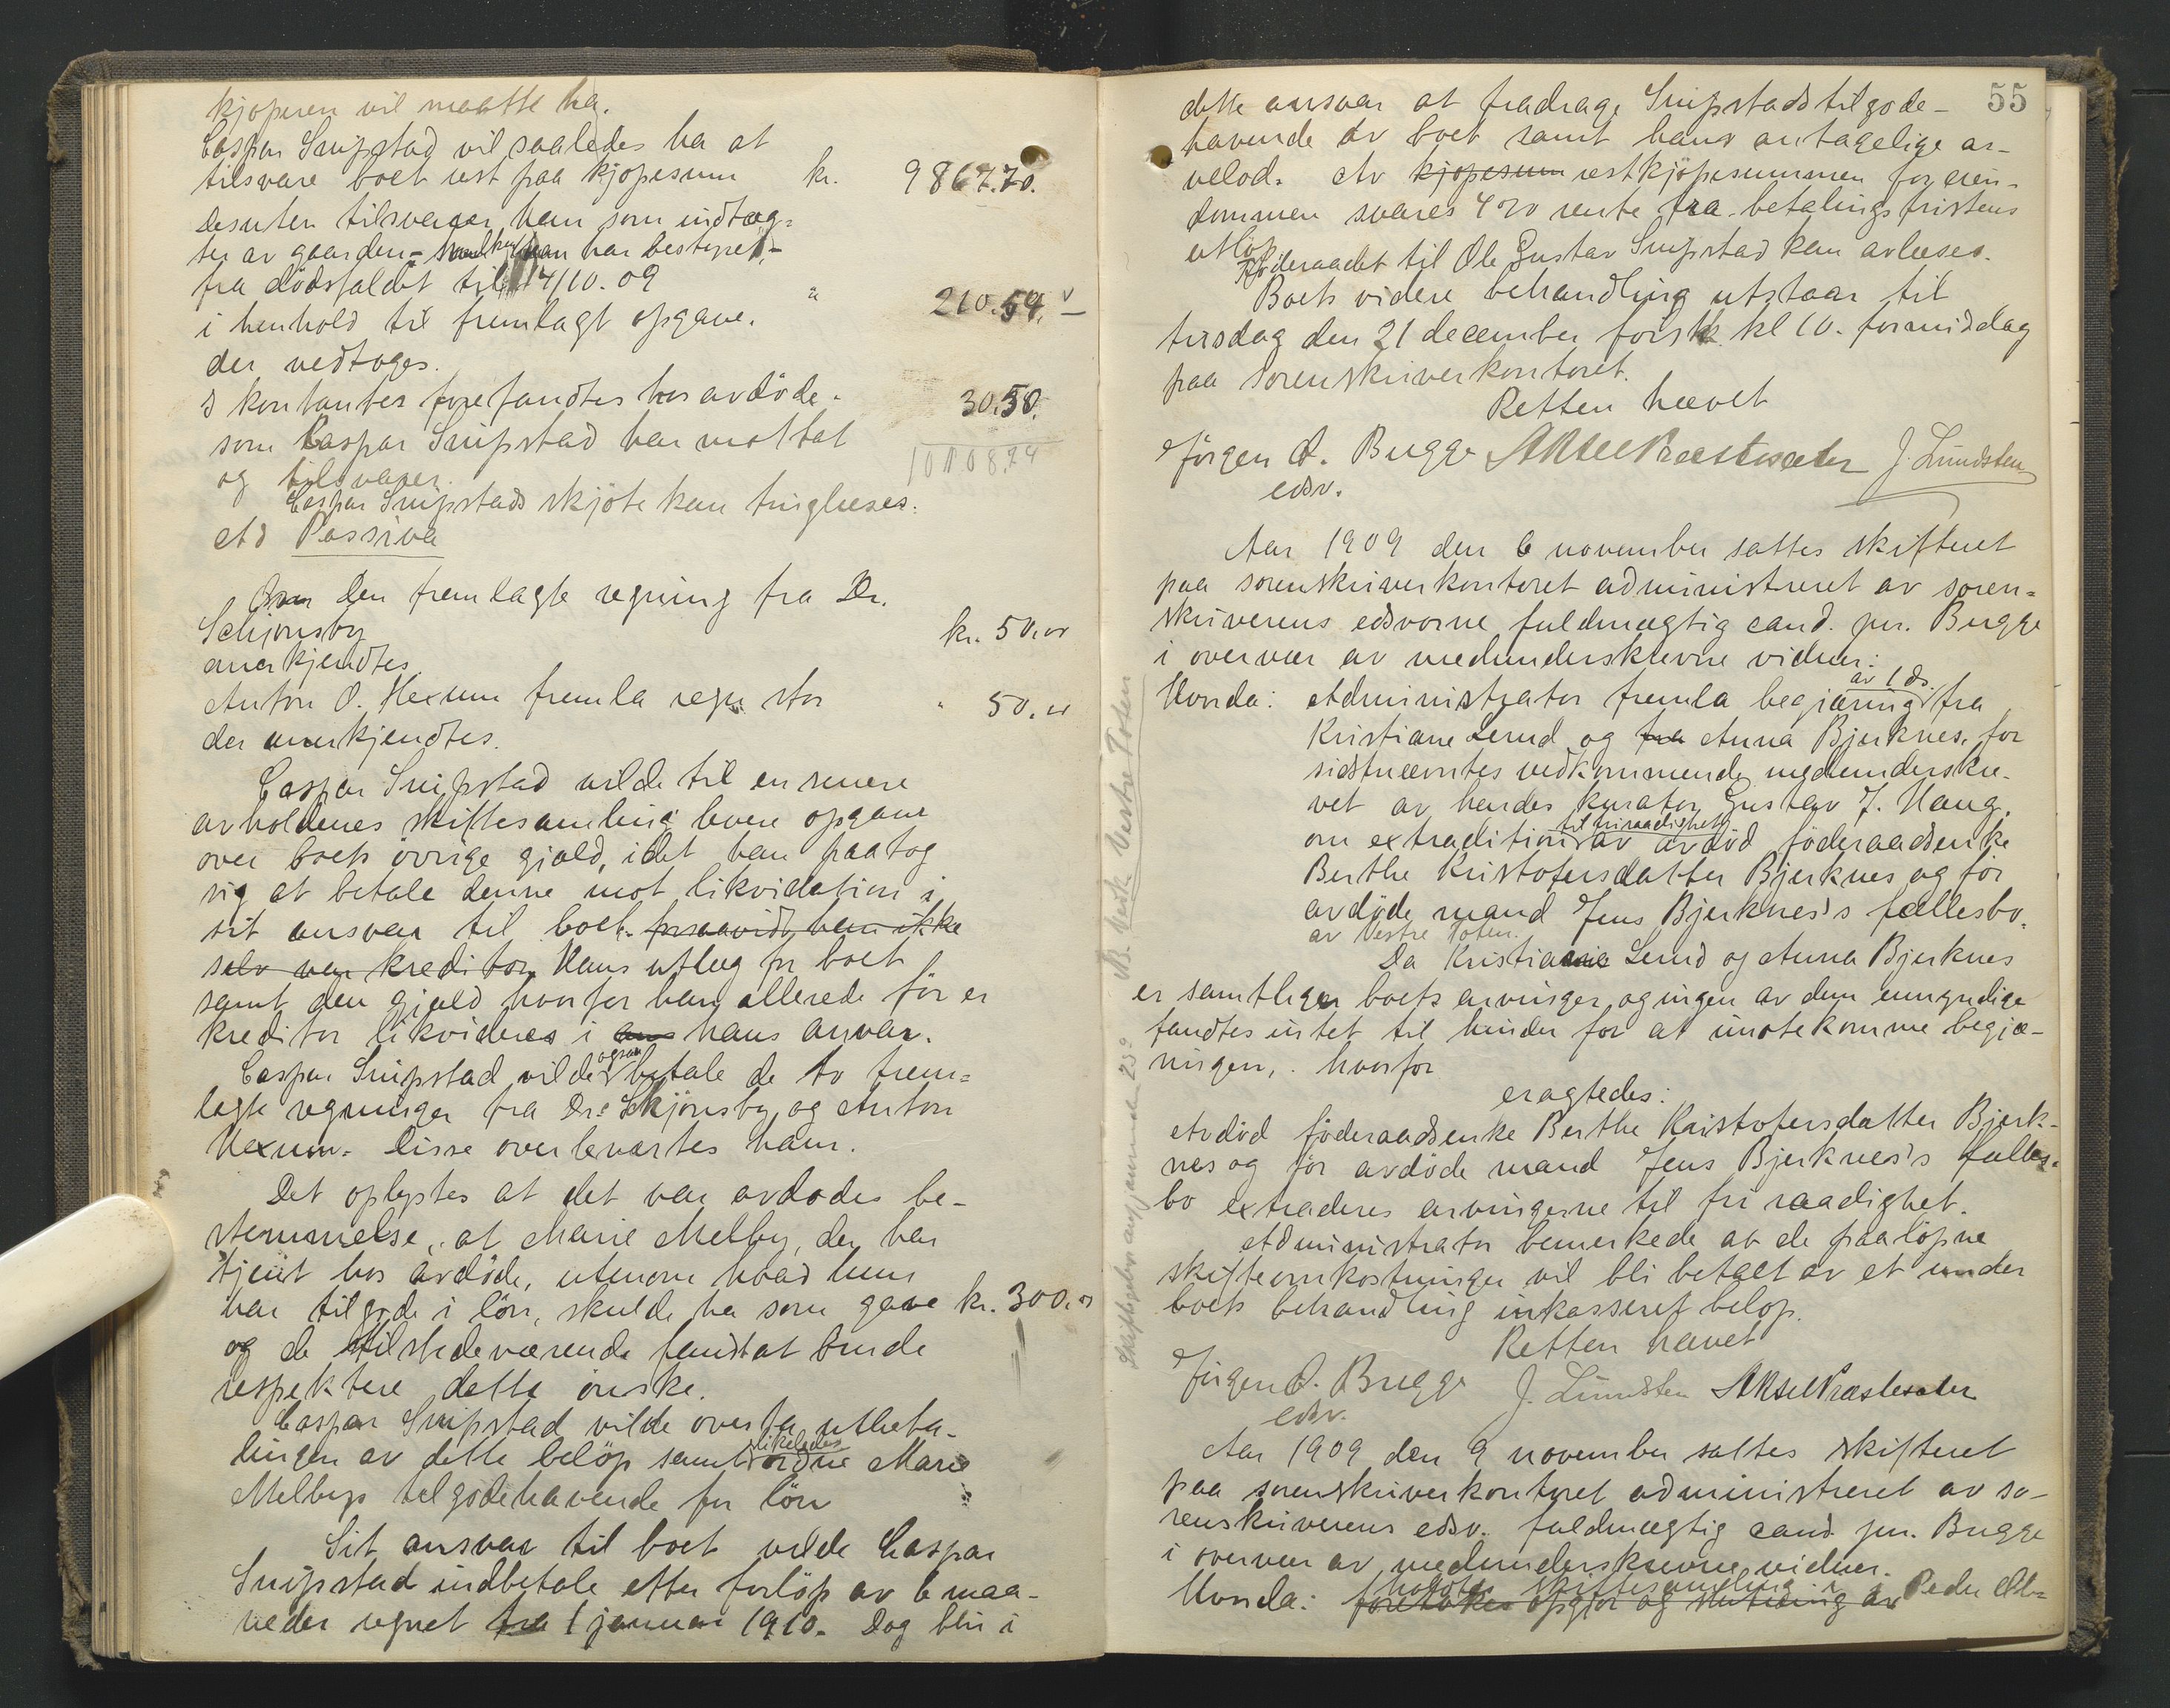 kjøperen vil maatte ha.
Caspar Snipstad vil saaledes ha at
tilsvare boet rest paa kjøpesum kr. 9867.70.
Desuten tilsvarer han som indtæg-
ter av gaarden - han har bestyret, -
fra dödsfaldet til 14/10. 09 " 210.54.
i henhold til fremlagt opgave.
der vedtoges.
I kontanter forefandtes hos avdöde. 30.50.
som Caspar Snipstad har mottat
og tilsvarer. 10108.74
Caspar Snipstads skjöte kan tinglæses.
Ad Passiva
Den fremlagte regning fra Dr.
Schjønsby kr. 50.00
anerkjendtes
Anton O. Hexum fremla regn. stor " 50.00
der anerkjendtes.
Caspar Snipstad vilde til en senere
avholdenes skiftesamling levere opgave
over boets övrige gjæld, idet han paatog
sig at betale denne mot likvidation i
sit ansvar til boet. forsaavidt han ikke
selv var kreditor. Hans utlæg for boet
samt den gjæld hvorfor han allerede för er
kreditor likvideres i ans hans ansvar.
Caspar Snipstad vilde ogsaa betale de to frem-
lagte regninger fra Dr. Skjønsby og Anton
Hexum. Disse overlevertes ham.
Det oplystes at det var avdødes be-
stemmelse, at Marie Melby, der har
tjent hos avdöde, utenom hvad hun
har tilgode i lön, skulde ha som gave kr. 300.00
og de tilstedeværende fandt at burde
respektere dette önske.
Caspar Snipstad vilde overta utbeta-
lingen av dette belöp samt likeledes ordne Marie
Melbys tilgodehavende for lön
Sit ansvar til boet vilde Caspar
Snipstad indbetale efter forlöp av 6 maa-
neder regnet fra 1 januar 1910. Dog blir i
55
dette ansvar at fradrage Snipstads tilgode-
havende av boet samt hans antagelige ar-
velod. Av kjøpesum restkjöpesummen for eien-
dommen svares 4% rente fra betalingsfristens
utlöp
Föderaadet til Ole Gustav Snipstad kan avlæses.
Boets videre behandling utstaar til
tirsdag den 21 december förstk. kl 10. formiddag
paa sorenskriverkontoret.
Retten hævet
Jörgen A. Bugge Aksel Præstesæter J. Lundsten
edsv.
Aar 1909 den 6 november sattes skifteret
paa sorenskriverkontoret administreret av soren-
skriverens edsvorne fuldmægtig cand. jur. Bugge
i overvær av medunderskrevne vidner:
Hvorda: Administrator fremla begjæring av 1 ds. fra
Kristiane Lerud og fra Anna Bjerknes, for
sidstnævntes vedkommende medunderskre-
vet av hendes kurator Gustav J. Haug.
om extradition til fri raadighet av avdöd föderaadsenke
Berthe Kristofersdatter Bjerknes og för
avdöde mand Jens Bjerknes's fællesbo.
av Vestre Toten.
Da Kristiane Lerud og Anna Bjerknes
er samtlige boets arvinger, og ingen av dem umyndige
fandtes intet til hinder for at imøtekomme begjæ-
ringen, hvorfor
eragtedes:
Avdöd föderaadsenke Berthe Kristofersdatter Bjerk-
nes og för avdöde mand Jens Bjerknes's fælles-
bo extraderes arvingerne til fri raadighet.
Administrator bemerkede at de paaløpne
skifteomkostninger vil bli betalt av et under
boets behandling inkasseret belöp.
Retten hævet
Jörgen A. Bugge J. Lundsten Aksel Præstesæter
edsv.
Aar 1909 den 9 november sattes skifteret
paa sorenskriverkontoret administreret av so-
renskriverens edsv. fuldmægtig cand. jur. Bugge
i overvær av medunderskrevne vidner.
Hvorda: holdtes skiftesamling i
foretokes opgjör og slutning av Peder
Vestre Toten